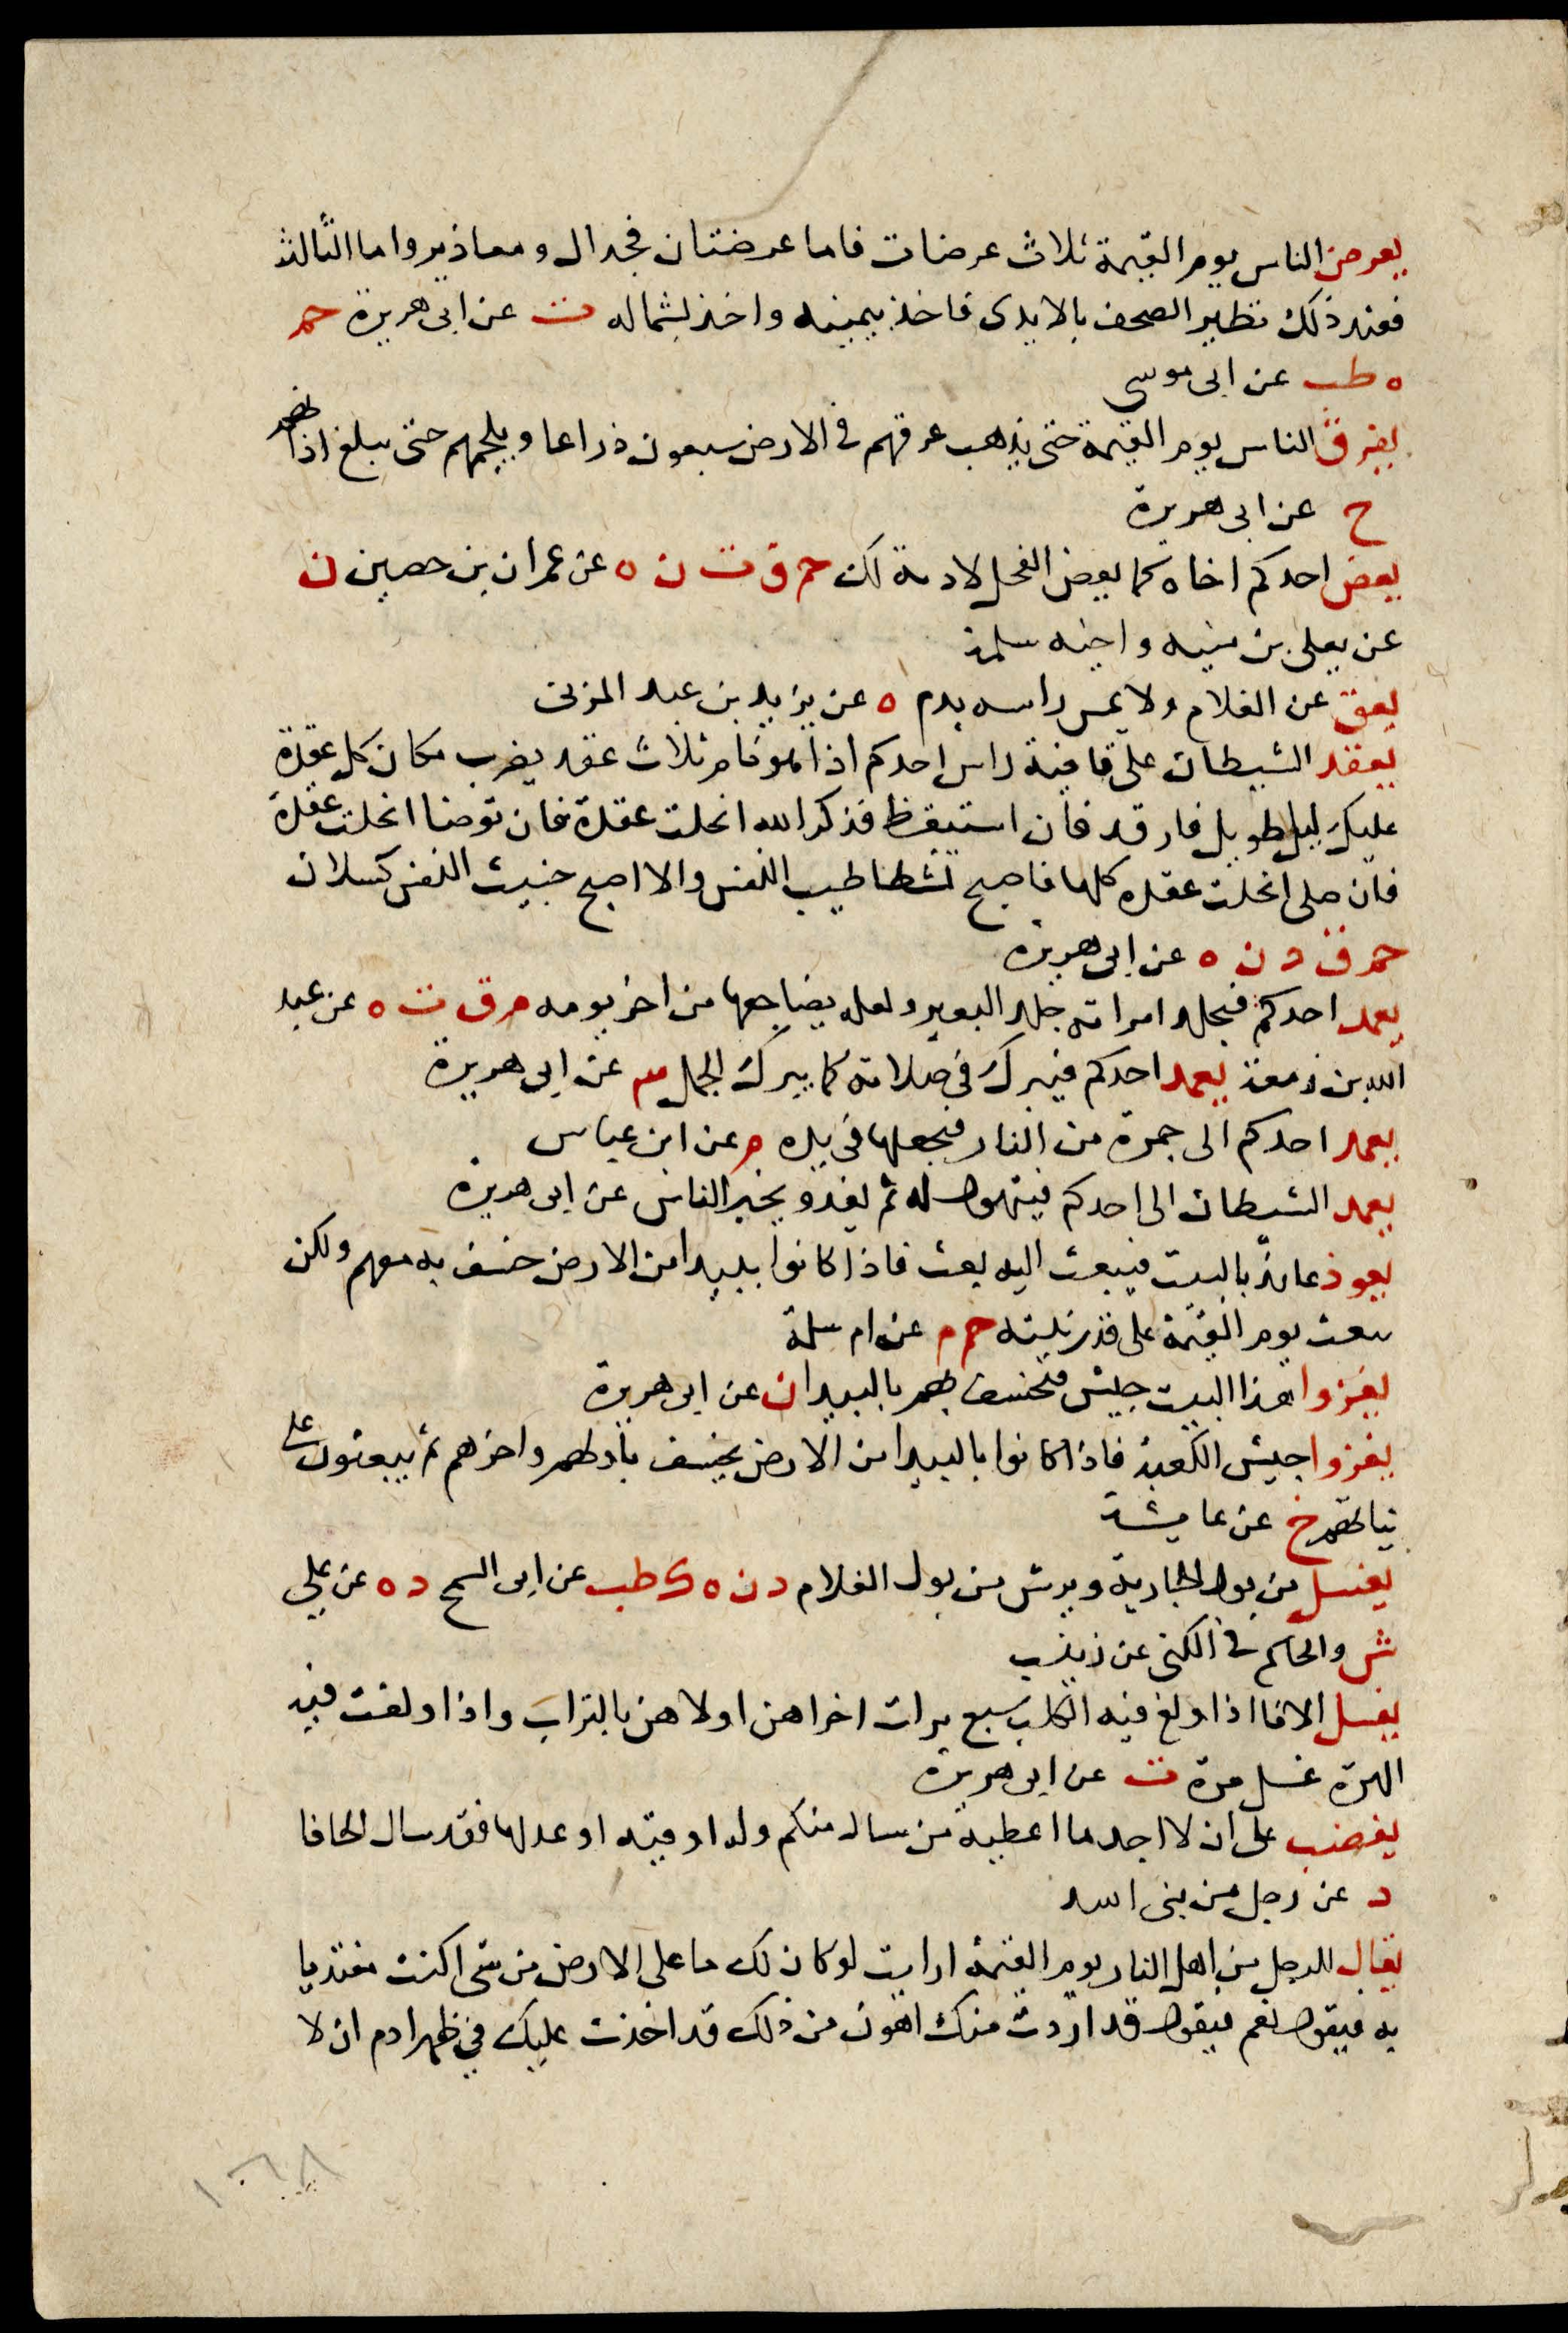 يعرض الناس يوم القيمة ثلاث عرضات فاما عرضتان فجدال ومعاذير واما الثالثة
فعند ذلك تطير الصحف بالايدى فاخذ بيمينه واخذ بشماله ت عن ابى هريرة حم
ه طب عن ابى موسى
يعرق الناس يوم القيمة حتى يذهب عرقهم في الارض سبعون ذراعا ويلجمهم حتى يبلغ اذانهم
خ عن ابى هريرة
يعض احدكم اخاه كما يعض الفحل لا دية لك حم ق ت ن ه عن عمران بن حصين ن
عن يعلى بن منيه واخيه سلمة
يعق عن الغلام ولا يمس راسه بدم ه عن يزيد بن عبد المزنى
يعقد الشيطان على قافية راس احدكم اذا هو نام ثلاث عقد يضرب مكان كل عقدة
عليك ليل طويل فارقد فان استيقظ فذكر الله انحلت عقدة فان توضا انحلت عقدة
فان صلى انحلت عقده كلها فاصبح نشطا طيب النفس والا اصبح خبيث النفس كسلان
حم ق د ن ه عن ابى هريرة
يعمد احدكم فيجلد امراته جلد البعير ولعله يضاجعها من اخر يومه م ق ت ه عن عبد
الله بن زمعة يعمد احدكم فيبرك في صلاته كما يبرك الجمل عن ابى هريرة
يعمد احدكم الى جمرة من النار فيجعلها في يده م عن ابن عباس
يعمد الشيطان الى احدكم فيتهول له ثم يغدو يخبر الناس عن ابى هريرة
يعوذ عائذ بالبيت فيبعث اليه بعث فاذا كانوا ببيدا من الارض خسف به معهم ولكن
يبعث يوم القيمة على قدر نيته حم م عن ام سلمة
يغزوا هذا البيت جيش فيخسف بهم بالبيدا ن عن ابى هريرة
يغزوا جيش الكعبة فاذا كانوا بالبيدا من الارض يخسف باولهم واخرهم ثم يبعثون على
نياتهم خ عن عايشة
يغسل من بول الجارية ويرش من بول الغلام د ن ه ك طب عن ابى السمح د ه عن على
ش والحاكم في الكنى عن زينب
يغسل الانا اذا ولغ فيه الكلب سبع مرات اخراهن اولاهن بالتراب واذا ولغت فيه
الهرة غسل مرة ت عن ابى هريرة
يغضب على ان لا اجد ما اعطيه من سال منكم وله اوقيه او عدلها فقد سال الحافا
د عن رجل من بنى اسد
يقال للرجل من اهل النار يوم القيمة ارايت لو كان لك ما على الارض من شى اكنت مفتديا
به فيقول نعم فيقول قد اردت منك اهون من ذلك قد اخذت عليك في ظهر ادم ان لا